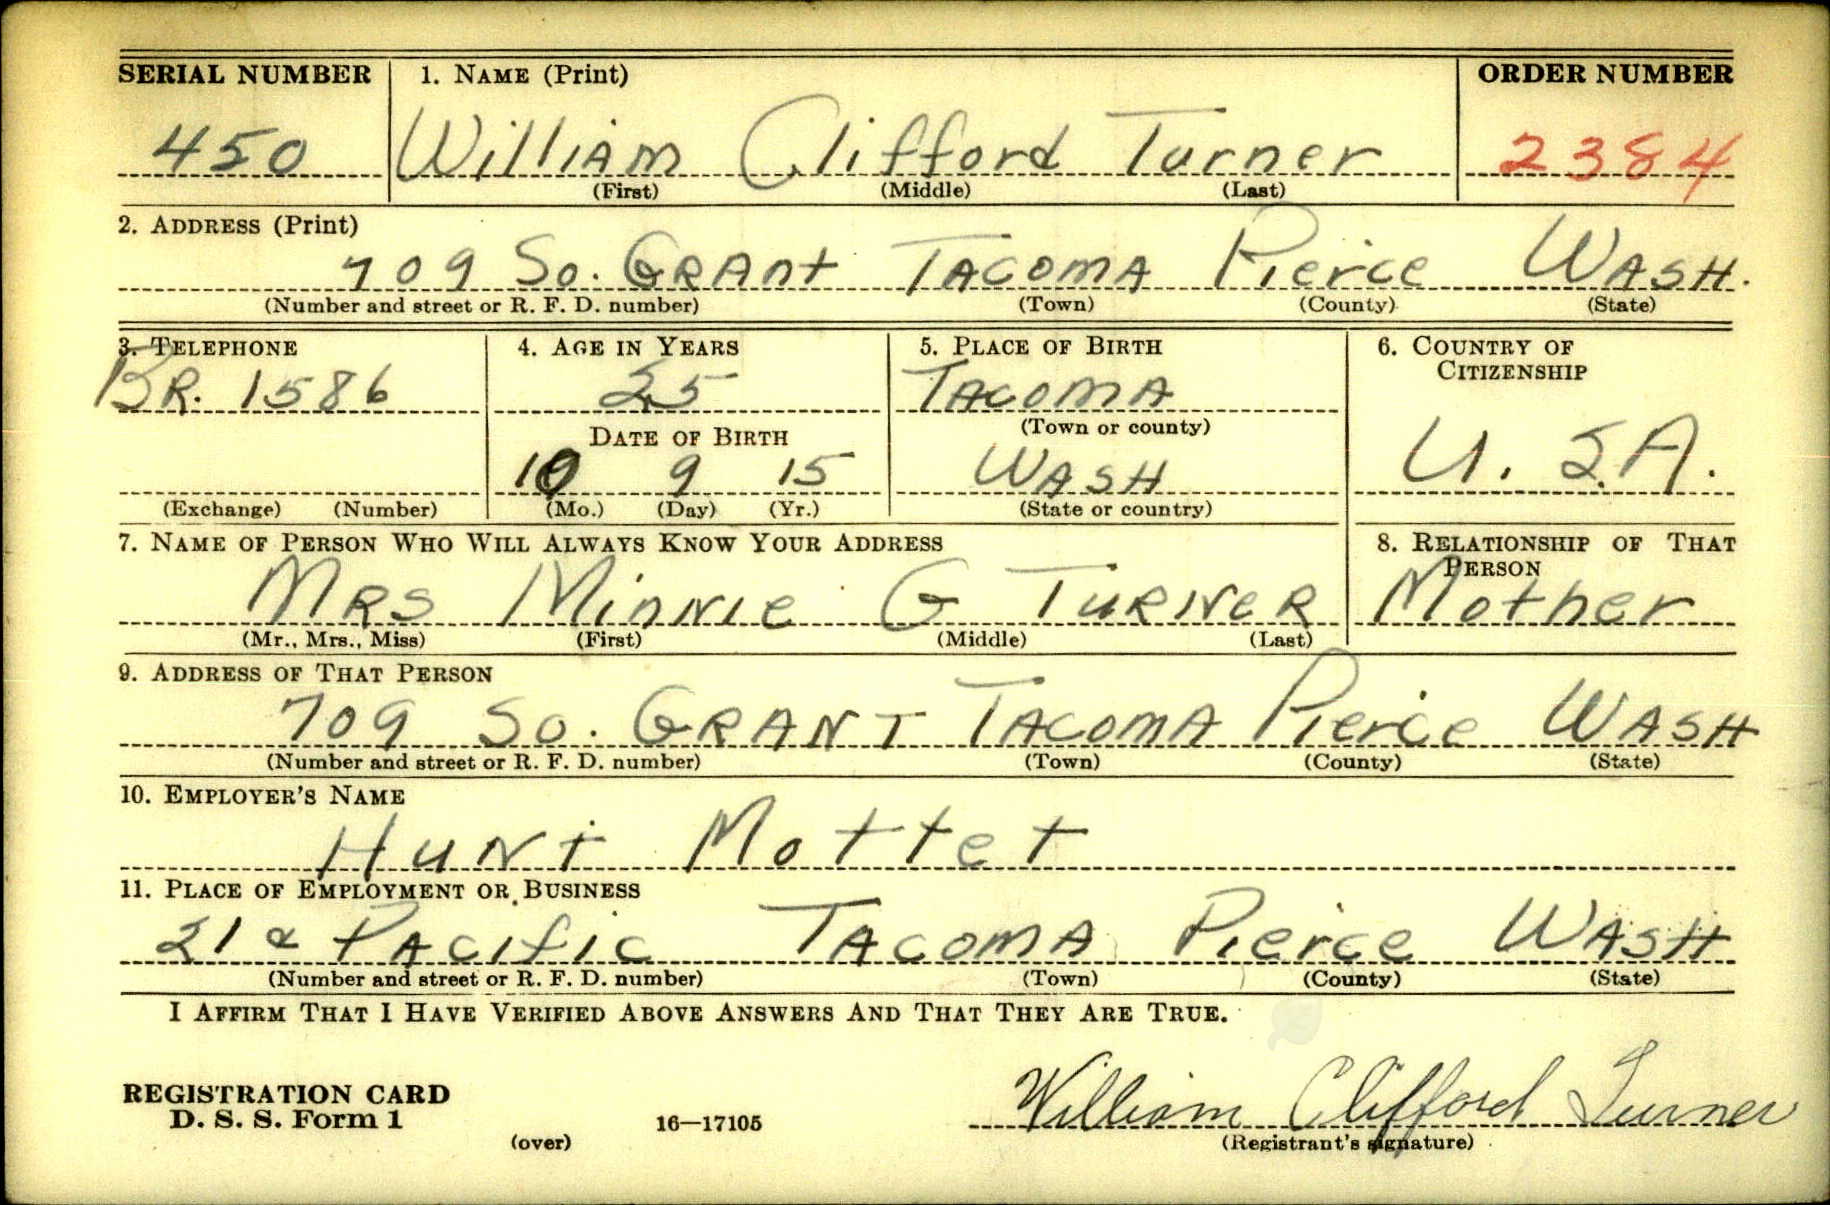 SERIAL NUMBER 1. NAME (Print) ORDER NUMBER
450 William Clifford Turner 2384
(First) (Middle) (Last)
2. ADDRESS (Print)
709 So. GRANt TACOMA PierCe WASH.
(Number and street or R. F. D. number) (Town) (County) (State)
3. TELEPHONE 4. AGE IN YEARS 5. PLACE OF BIRTH 6. COUNTRY OF CITIZENSHIP
BR. 1586 25 TACOMA
DATE OF BIRTH (Town or county)
10 9 15 WASH U.S.A.
(Exchange) (Number) (Mo.) (Day) (Yr.) (State or country)
7. NAME OF PERSON WHO WILL ALWAYS KNOW YOUR ADDRESS 8. RELATIONSHIP OF THAT PERSON
MRS MiNNIe G TURNeR Mother
(Mr., Mrs., Miss) (First) (Middle) (Last)
9. ADDRESS OF THAT PERSON
709 So. GRANT TACOMA PierCe WASH
(Number and street or R. F. D. number) (Town) (County) (State)
10. EMPLOYER'S NAME
HuNt Mottet
11. PLACE OF EMPLOYMENT OR BUSINESS
21 & PAcific TACOMA PierCe WASH
(Number and street or R. F. D. number) (Town) (County) (State)
I AFFIRM THAT I HAVE VERIFIED ABOVE ANSWERS AND THAT THEY ARE TRUE.
REGISTRATION CARD
D. S. S. Form 1 16—17105 William Clifford Turner
(over) (Registrant's signature)